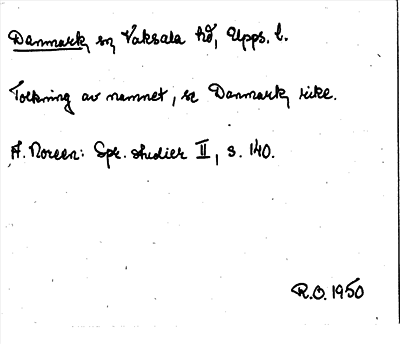 Danmark sn Vaksala hd, Upps. l.
Tolkning av namnet, se Danmark, rike.
A. Noreen: Spr. studier II, s. 140.
R.O. 1950